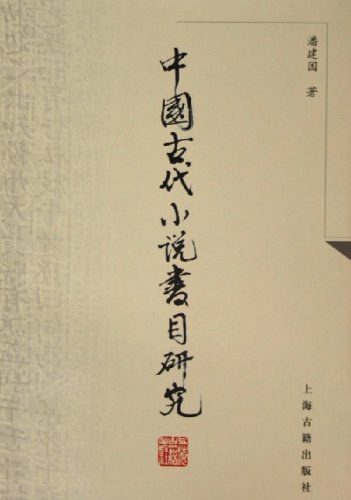 潘建国 著
中國古代小说书目研究
上海古籍出版社